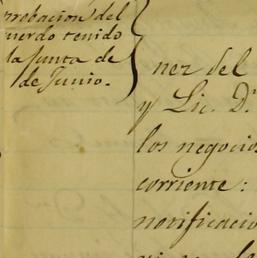 probacion del
uerdo tenido
la Junta de
de Junio.
nez del
y Lic. D.
los negocios
corriente:
notificacio